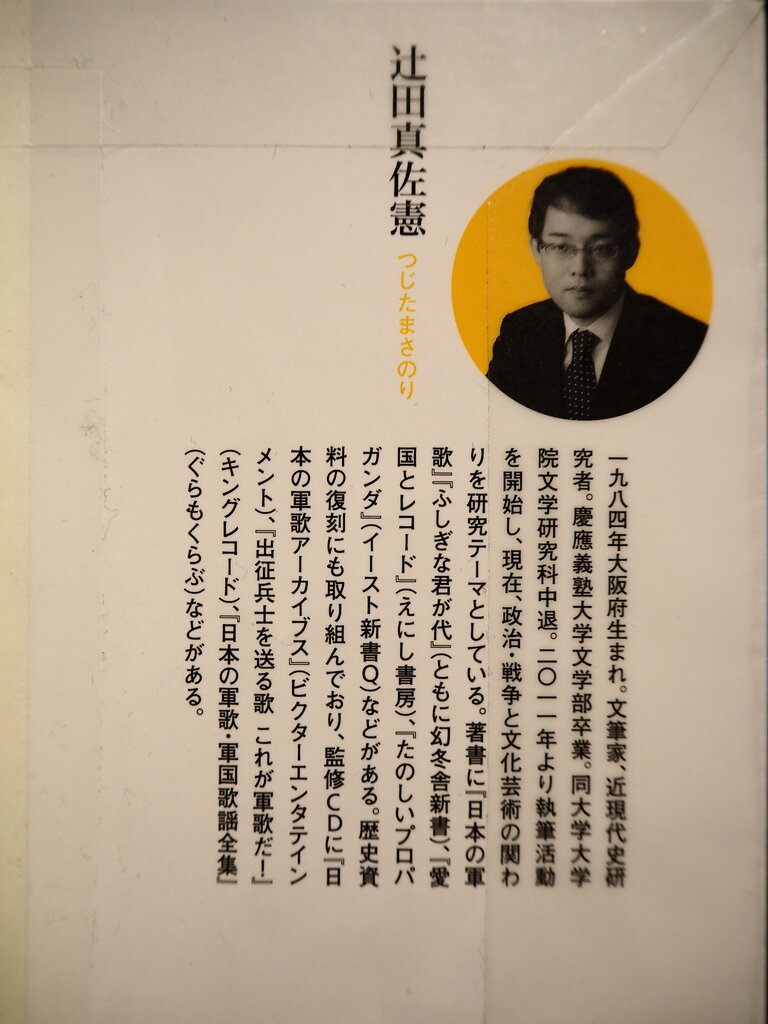 辻田真佐憲
つじたまさのり
一九八四年大阪府生まれ。文筆家、近現代史研
究者。慶應義塾大学文学部卒業。同大学大学
院文学研究科中退。二〇一一年より執筆活動
を開始し、現在、政治・戦争と文化芸術の関わ
りを研究テーマとしている。著書に『日本の軍
歌』『ふしぎな君が代』(ともに幻冬舎新書)、『愛
国とレコード』(えにし書房)、『たのしいプロパ
ガンダ』(イースト新書Q)などがある。歴史資
料の復刻にも取り組んでおり、監修CDに『日
本の軍歌アーカイブス』(ビクターエンタテイン
メント)、『出征兵士を送る歌 これが軍歌だ!』
(キングレコード)、『日本の軍歌・軍国歌謡全集』
(ぐらもくらぶ)などがある。